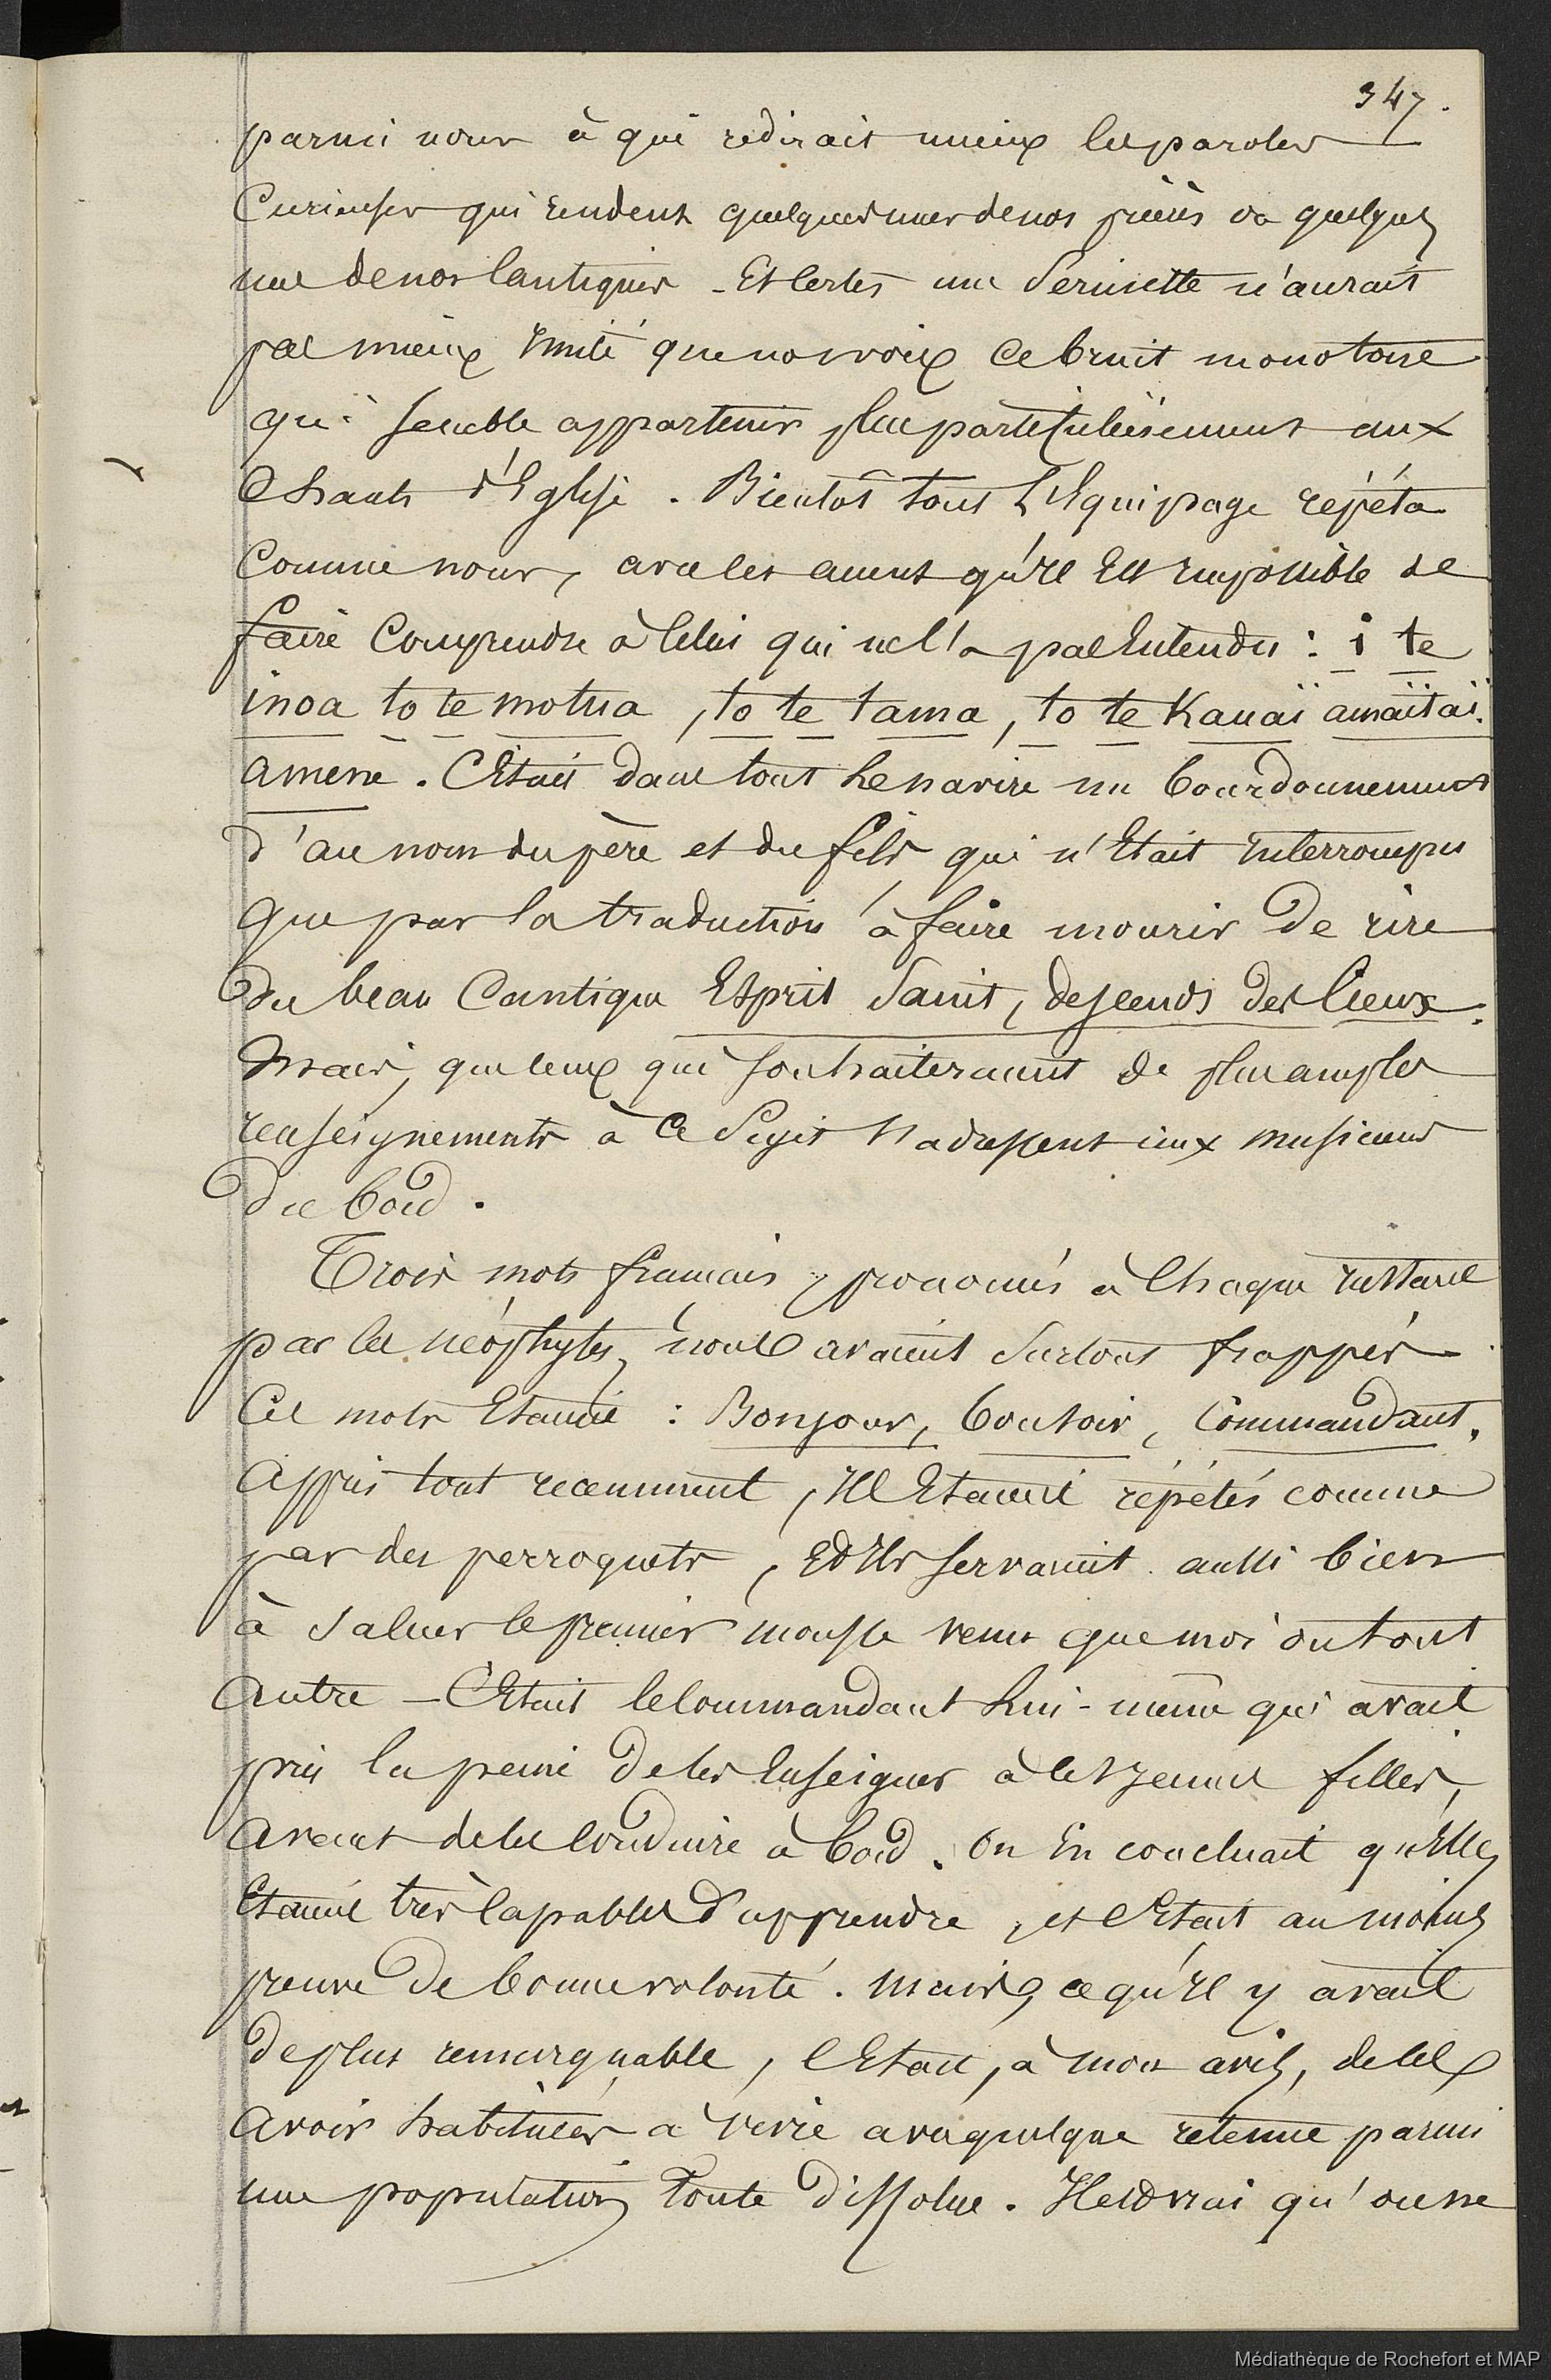 347.
parmi nous à qui redirait mieux les paroles
Curieuses qui rendent quelques unes de nos prières ou quelques
uns de nos Cantiques - Et Certes une Serinette n'aurait
pas mieux Imité que nos voix Ce bruit monotone
qui semble appartenir plus particulièrement aux
Chants d'Eglise. Bientôt tout L'Equipage répéta
Comme nous, avec les accents qu'Il Est Impossible de
faire Comprendre à Celui qui ne l'a pas Entendu : i te
inoa to te motua, to te tama, to te Kauaï amaïtaï.
amene. C'Etait dans tout Le navire un bourdonnement
d'au nom du père et du fils qui n'Etait Interrompu
que par la traduction à faire mourir de rire
du beau Cantique Esprit Saint, descends des Cieux.
Mais, que Ceux qui souhaiteraient de plus amples
renseignements à Ce Sujet s'adressent aux musiciens
du bord.
Trois mots français, prononcés à Chaque Instant
par les néophytes, nous avaient Surtout frappés.
Ces mots Etaient : Bonjour, bonsoir, Commandant.
Appris tout recemment, Ils Etaient répétés comme
par des perroquets, Et Ils servaient aussi bien
à Saluer le premier mousse venu que moi ou tout
autre - C'Etait le Commandant Lui-même qui avait
pris la peine de les Enseigner à Ces jeunes filles,
avant de les Conduire à bord. On En concluait qu'Elles
Etaient très Capables d'apprendre, et C'Etait au moins
preuve de bonne volonté. Mais, ce qu'Il y avait
de plus remarquable, C'Etait, à mon avis, de les
avoir habituées à vivre avec quelque retenue parmi
une population toute dissolue. Il est vrai qu'on ne
Médiathèque de Rochefort et MAP